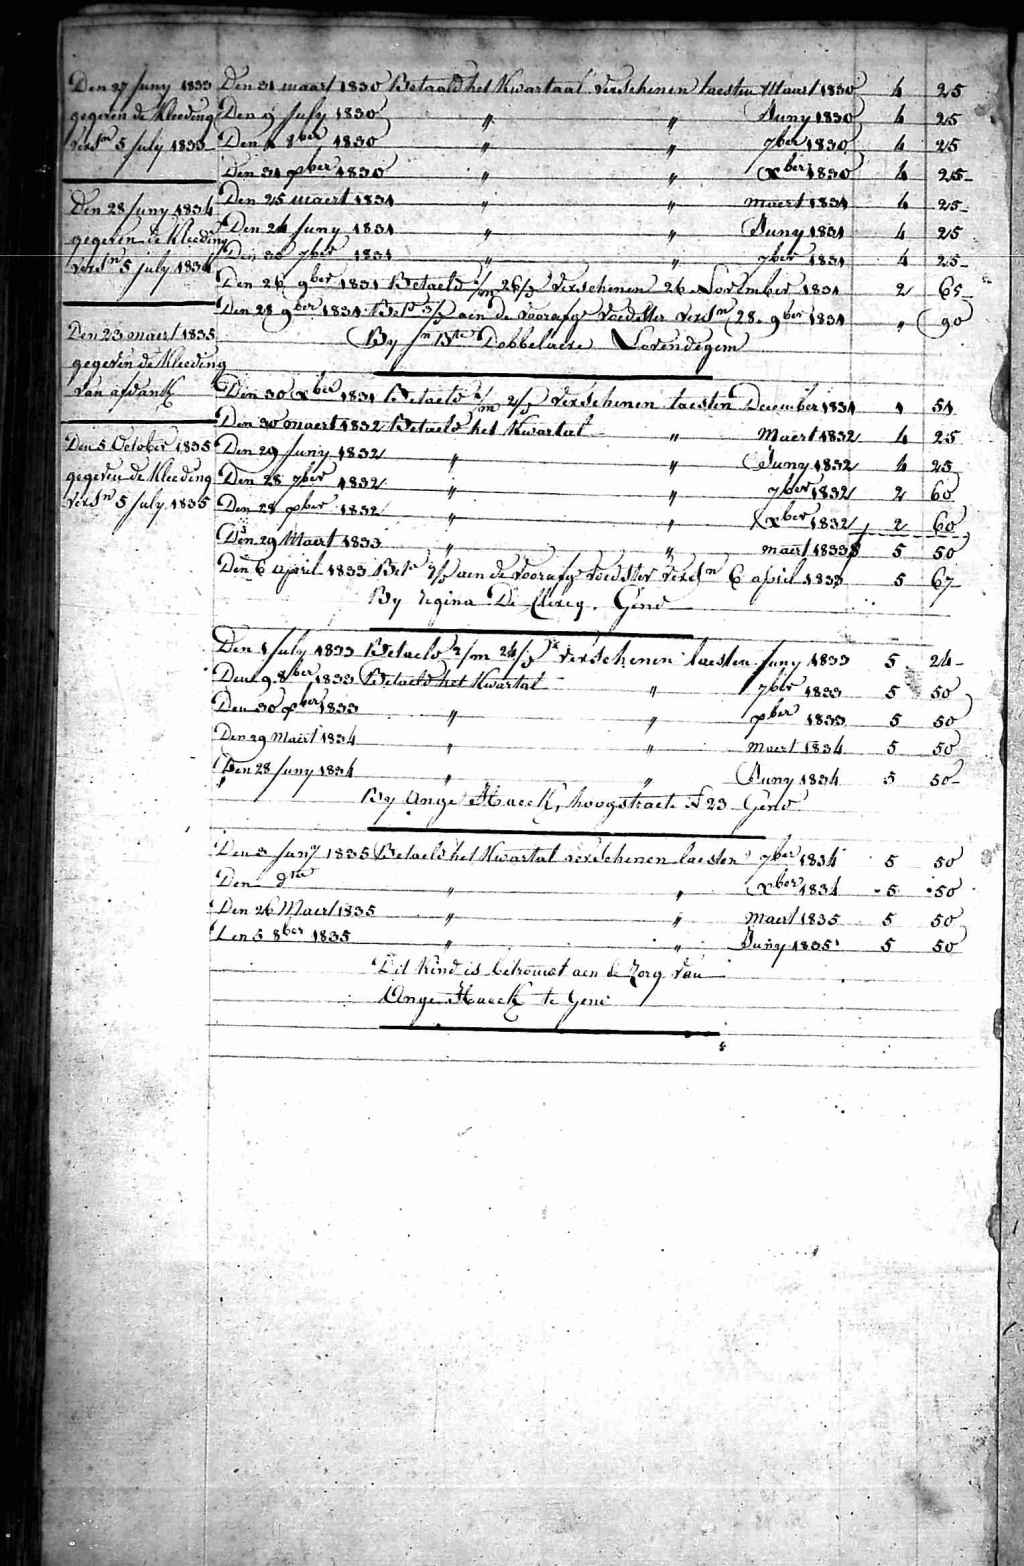 Den 27 Juny 1833
gegeven de Kleeding
versn 5 July 1833
Den 28 Juny 1834
gegeven de Kleeding
versn 5 july 1834
Den 23 maert 1835
gegeven de Kleeding
van afdank
Den 5 October 1835
gegeven de Kleeding
versn 5 July 1835
Den 31 maart 1830 Betaald het Kwartaal verschenen laesten Maart 1830 4 25
Den 9 July 1830 " " Juny 1830 4 25
Den 8ber 1830 " " 7ber 1830 4 25
Den 31 xber 1830 " " Xber 1830 4 25
Den 25 maert 1831 " " maert 1831 4 25
Den 24 Juny 1831 " " Juny 1831 4 25
Den 30 7ber 1831 " " 7ber 1831 4 25
Den 26 9ber 1831 Betaeld 1/m 26/d verschenen 26 November 1831 2 65
Den 28 9ber 1831 Betd 3/d aen de voorafg voedster versn 28 9ber 1831 " 90
By Dobbelaere Lovendegem
Den 30 Xber 1831 Betaeld 1/m 2/d verschenen laesten December 1831 1 51
Den 30 maert 1832 Betaeld het Kwartal " Maert 1832 4 25
Den 29 Juny 1832 " " Juny 1832 4 25
Den 28 7ber 1832 " " 7ber 1832 2 60
Den 28 xber 1832 " " Xber 1832 2 60
Den 29 Maert 1833 " " maert 1833 5 50
Den 6 april 1833 Betd /d aen de voorafg voedster versn 6 april 1833 5 67
By Regina De Clercq. Gend
Den 1 July 1833 Betaeld 2/m 24/d verschenen laesten Juny 1833 5 24
Den 9 8ber 1833 Betaeld het Kwartal " 7ber 1833 5 50
Den 30 xber 1833 " " xber 1833 5 50
Den 29 Maert 1834 " " maert 1834 5 50
Den 28 Juny 1834 " " Juny 1834 5 50
By Ange Haeck, hoogstraete 23 Gend
Den 3 Jany 1835 Betaeld het Kwartal verschenen laesten 7ber 1834 5 50
Den dto " " Xber 1834 5 50
Den 26 Maert 1835 " " maert 1835 5 50
Den 5 8ber 1835 " " Juny 1835 5 50
Dit Kind is betrouwt aen de Zorg van
Ange Haeck te Gend